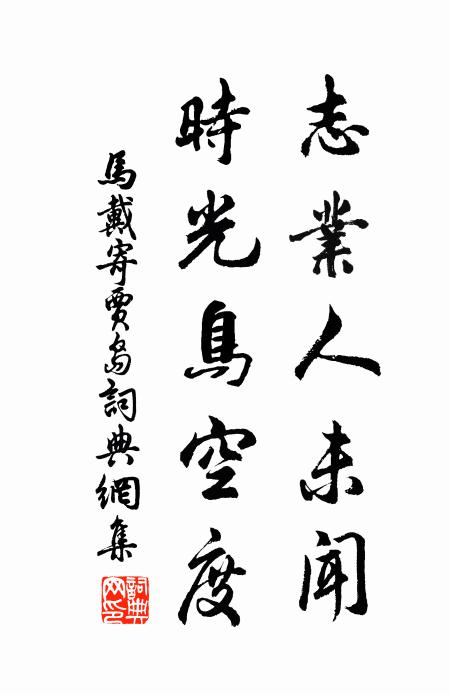 志業人未聞
時光鳥空度
馬戴寄賈島詞典網集
詞典網印